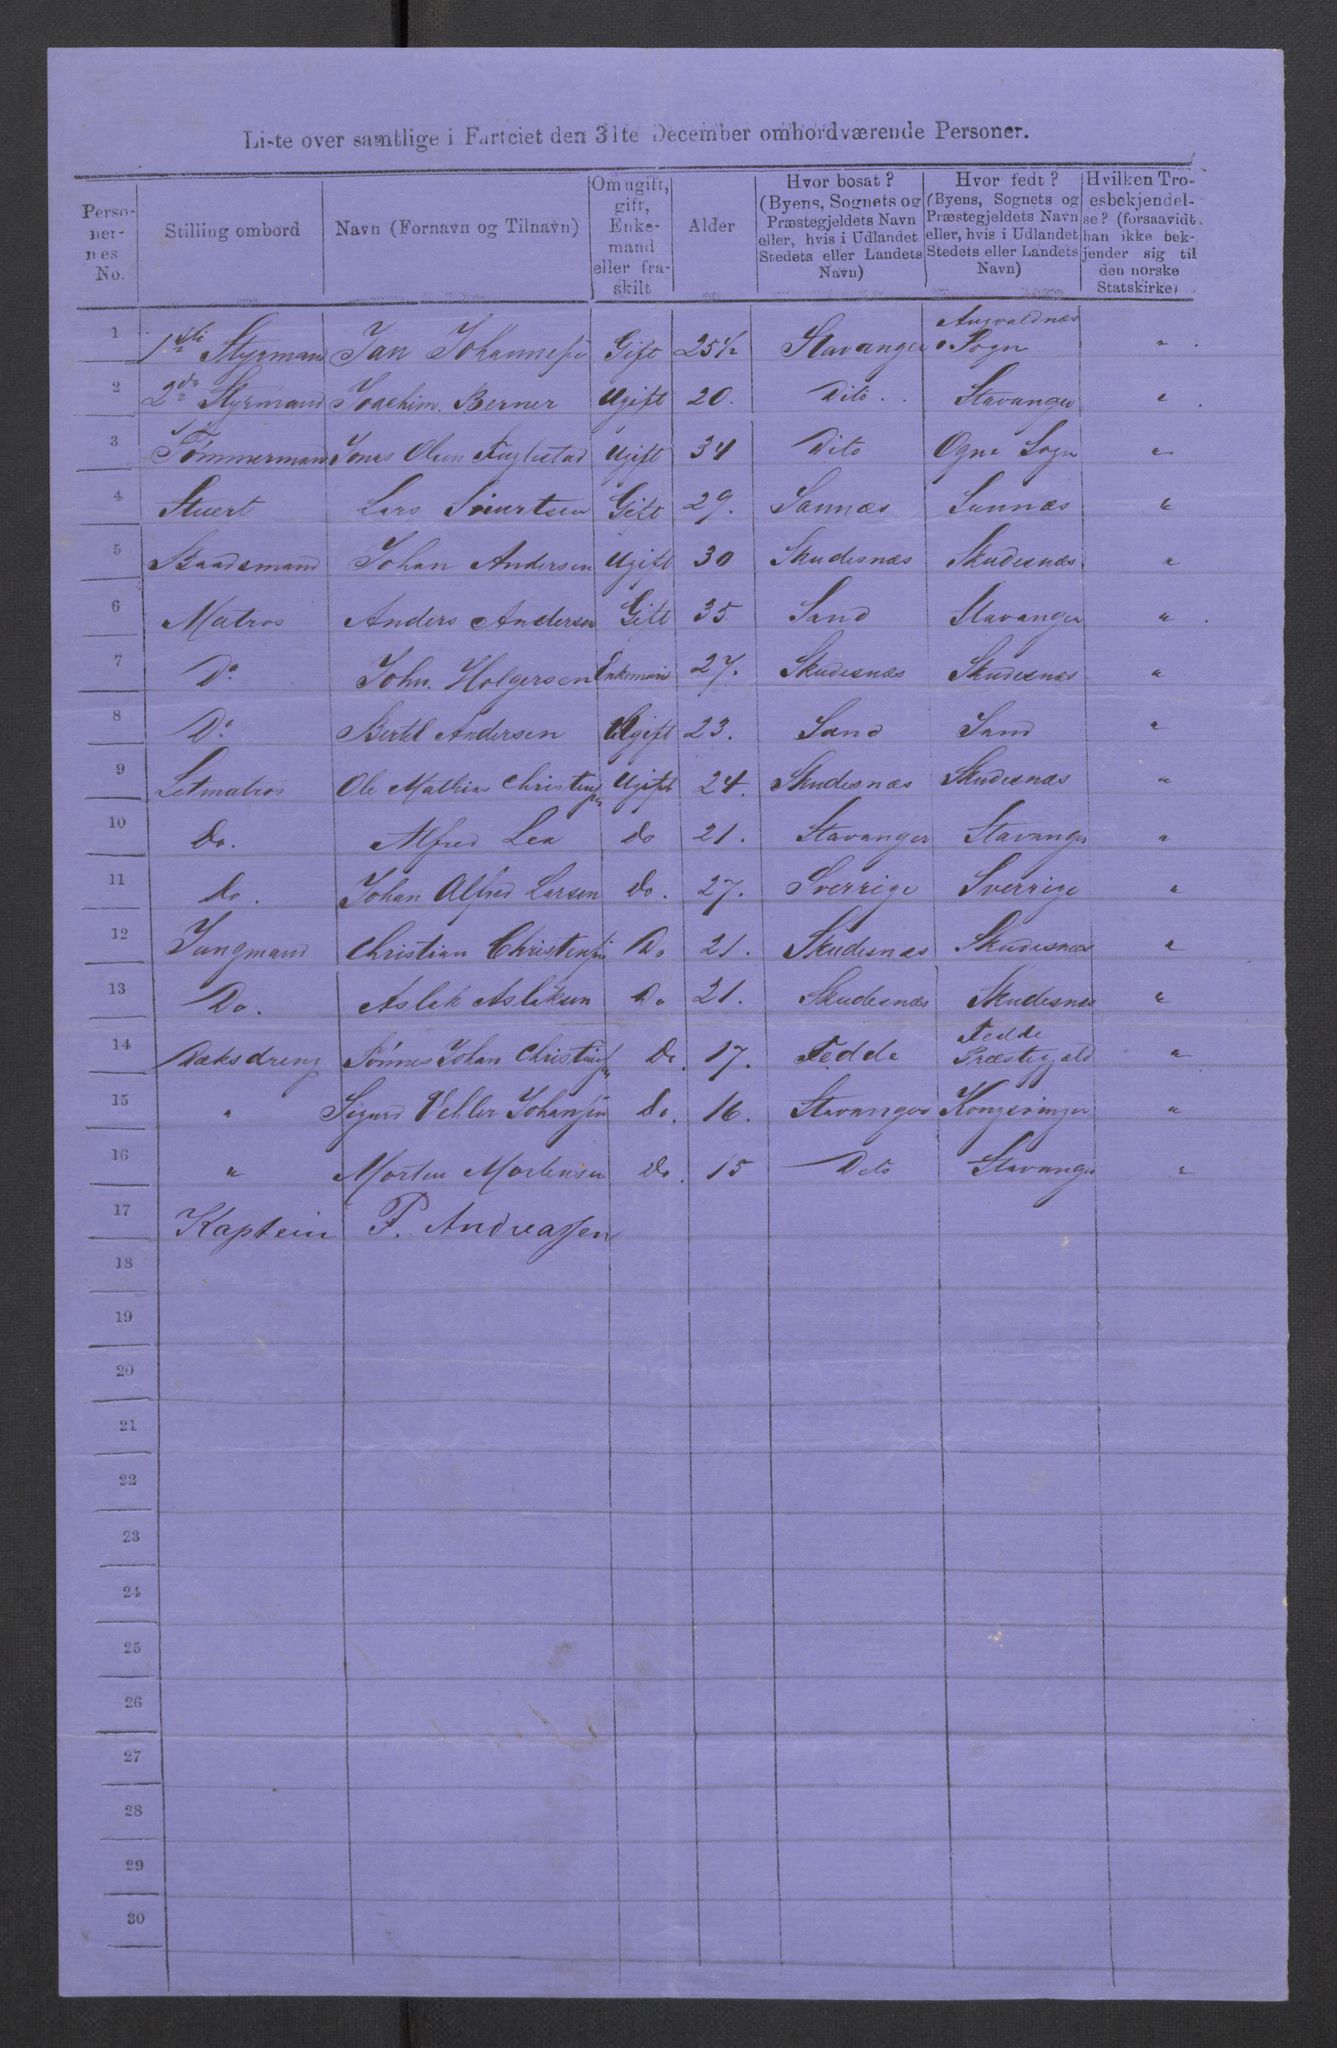 Liste over samtlige i Fartøiet den 31te December ombordværende Personer.
Personernes No. | Stilling ombord | Navn (Fornavn og Tilnavn) | Om ugift, gift, Enkemand eller fraskilt | Alder | Hvor bosat? (Byens, Sognets og Præstegjeldets Navn eller, hvis i Udlandet Stedets eller Landets Navn) | Hvor født? (Byens, Sognets og Præstegjeldets Navn eller, hvis i Udlandet Stedets eller Landets Navn) | Hvilken Troesbekjendelse? (forsaavidt han ikke bekjender sig til den norske Statskirke)
1 | 1ste Styrmand | Jan Johannesen | Gift | 25 1/2 | Stavanger | Augvaldnæs Sogn | "
2 | 2den Styrmand | Joachim Berner | Ugift | 20. | Dito. | Stavanger | "
3 | Tømmermand | Jonas Olsen Fuglestad | Ugift | 34 | Dito | Ogne Sogn | "
4 | Stuert | Lars Sivertsen | Gift | 29. | Sannæs | Sannæs | "
5 | Baadsmand | Johan Andersen | Ugift | 30 | Skudesnæs | Skudesnæs | "
6 | Matros | Anders Andersen | Gift | 35 | Sand | Stavanger | "
7 | Do | John. Holgersen | Enkemand | 27. | Skudesnæs | Skudesnæs | "
8 | Do | Bertel Andersen | Ugift | 23. | Sand | Sand | "
9 | Letmatros | Ole Mathias Christensen | Ugift | 24. | Skudesnæs | Skudesnæs | "
10 | Do. | Alfred Lea | Do | 21. | Stavanger | Stavanger | "
11 | Do. | Johan Alfred Larsen | Do. | 27. | Sverrige | Sverrige | "
12 | Jungmand | Christian Christensen | Do | 21. | Skudesnæs | Skudesnæs | "
13 | Do. | Aslak Aslaksen | Do | 21. | Skudesnæs | Skudesnæs | "
14 | Dæksdreng | Tønnes Johan Christensen | Do. | 17. | Fedde | Fedde Præstegjæld | "
15 | " | Sigurd Johansen | Do. | 16. | Stavanger | Kongsvinger | "
16 | " | Morten Mortensen | Do. | 15 | Dito | Stavanger | "
17 | Kaptein | P. Andreassen
18
19
20
21
22
23
24
25
26
27
28
29
30